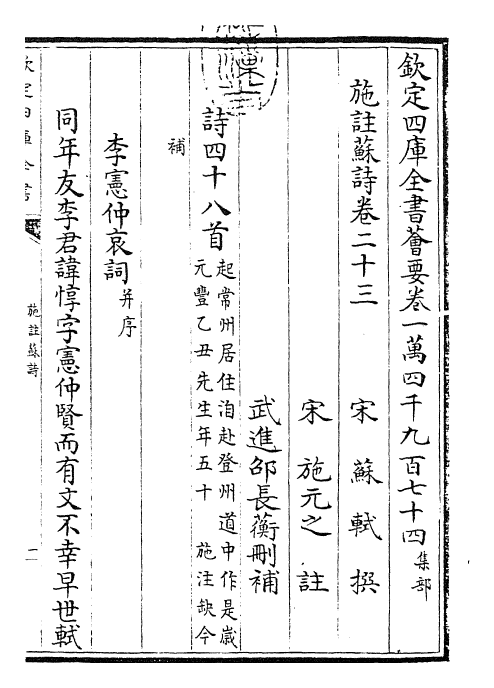 欽定四庫全書薈要卷一萬四千九百七十四 集部
施註蘇詩卷二十三
宋 蘇軾 撰
宋 施元之 註
武進邵長蘅刪補
詩四十八首 起常州居住洎赴登州道中作是歲
元豐乙丑先生年五十 施注缺今
補
李憲仲哀詞 并序
同年友李君諱惇字憲仲賢而有文不幸早世軾
施註蘇詩